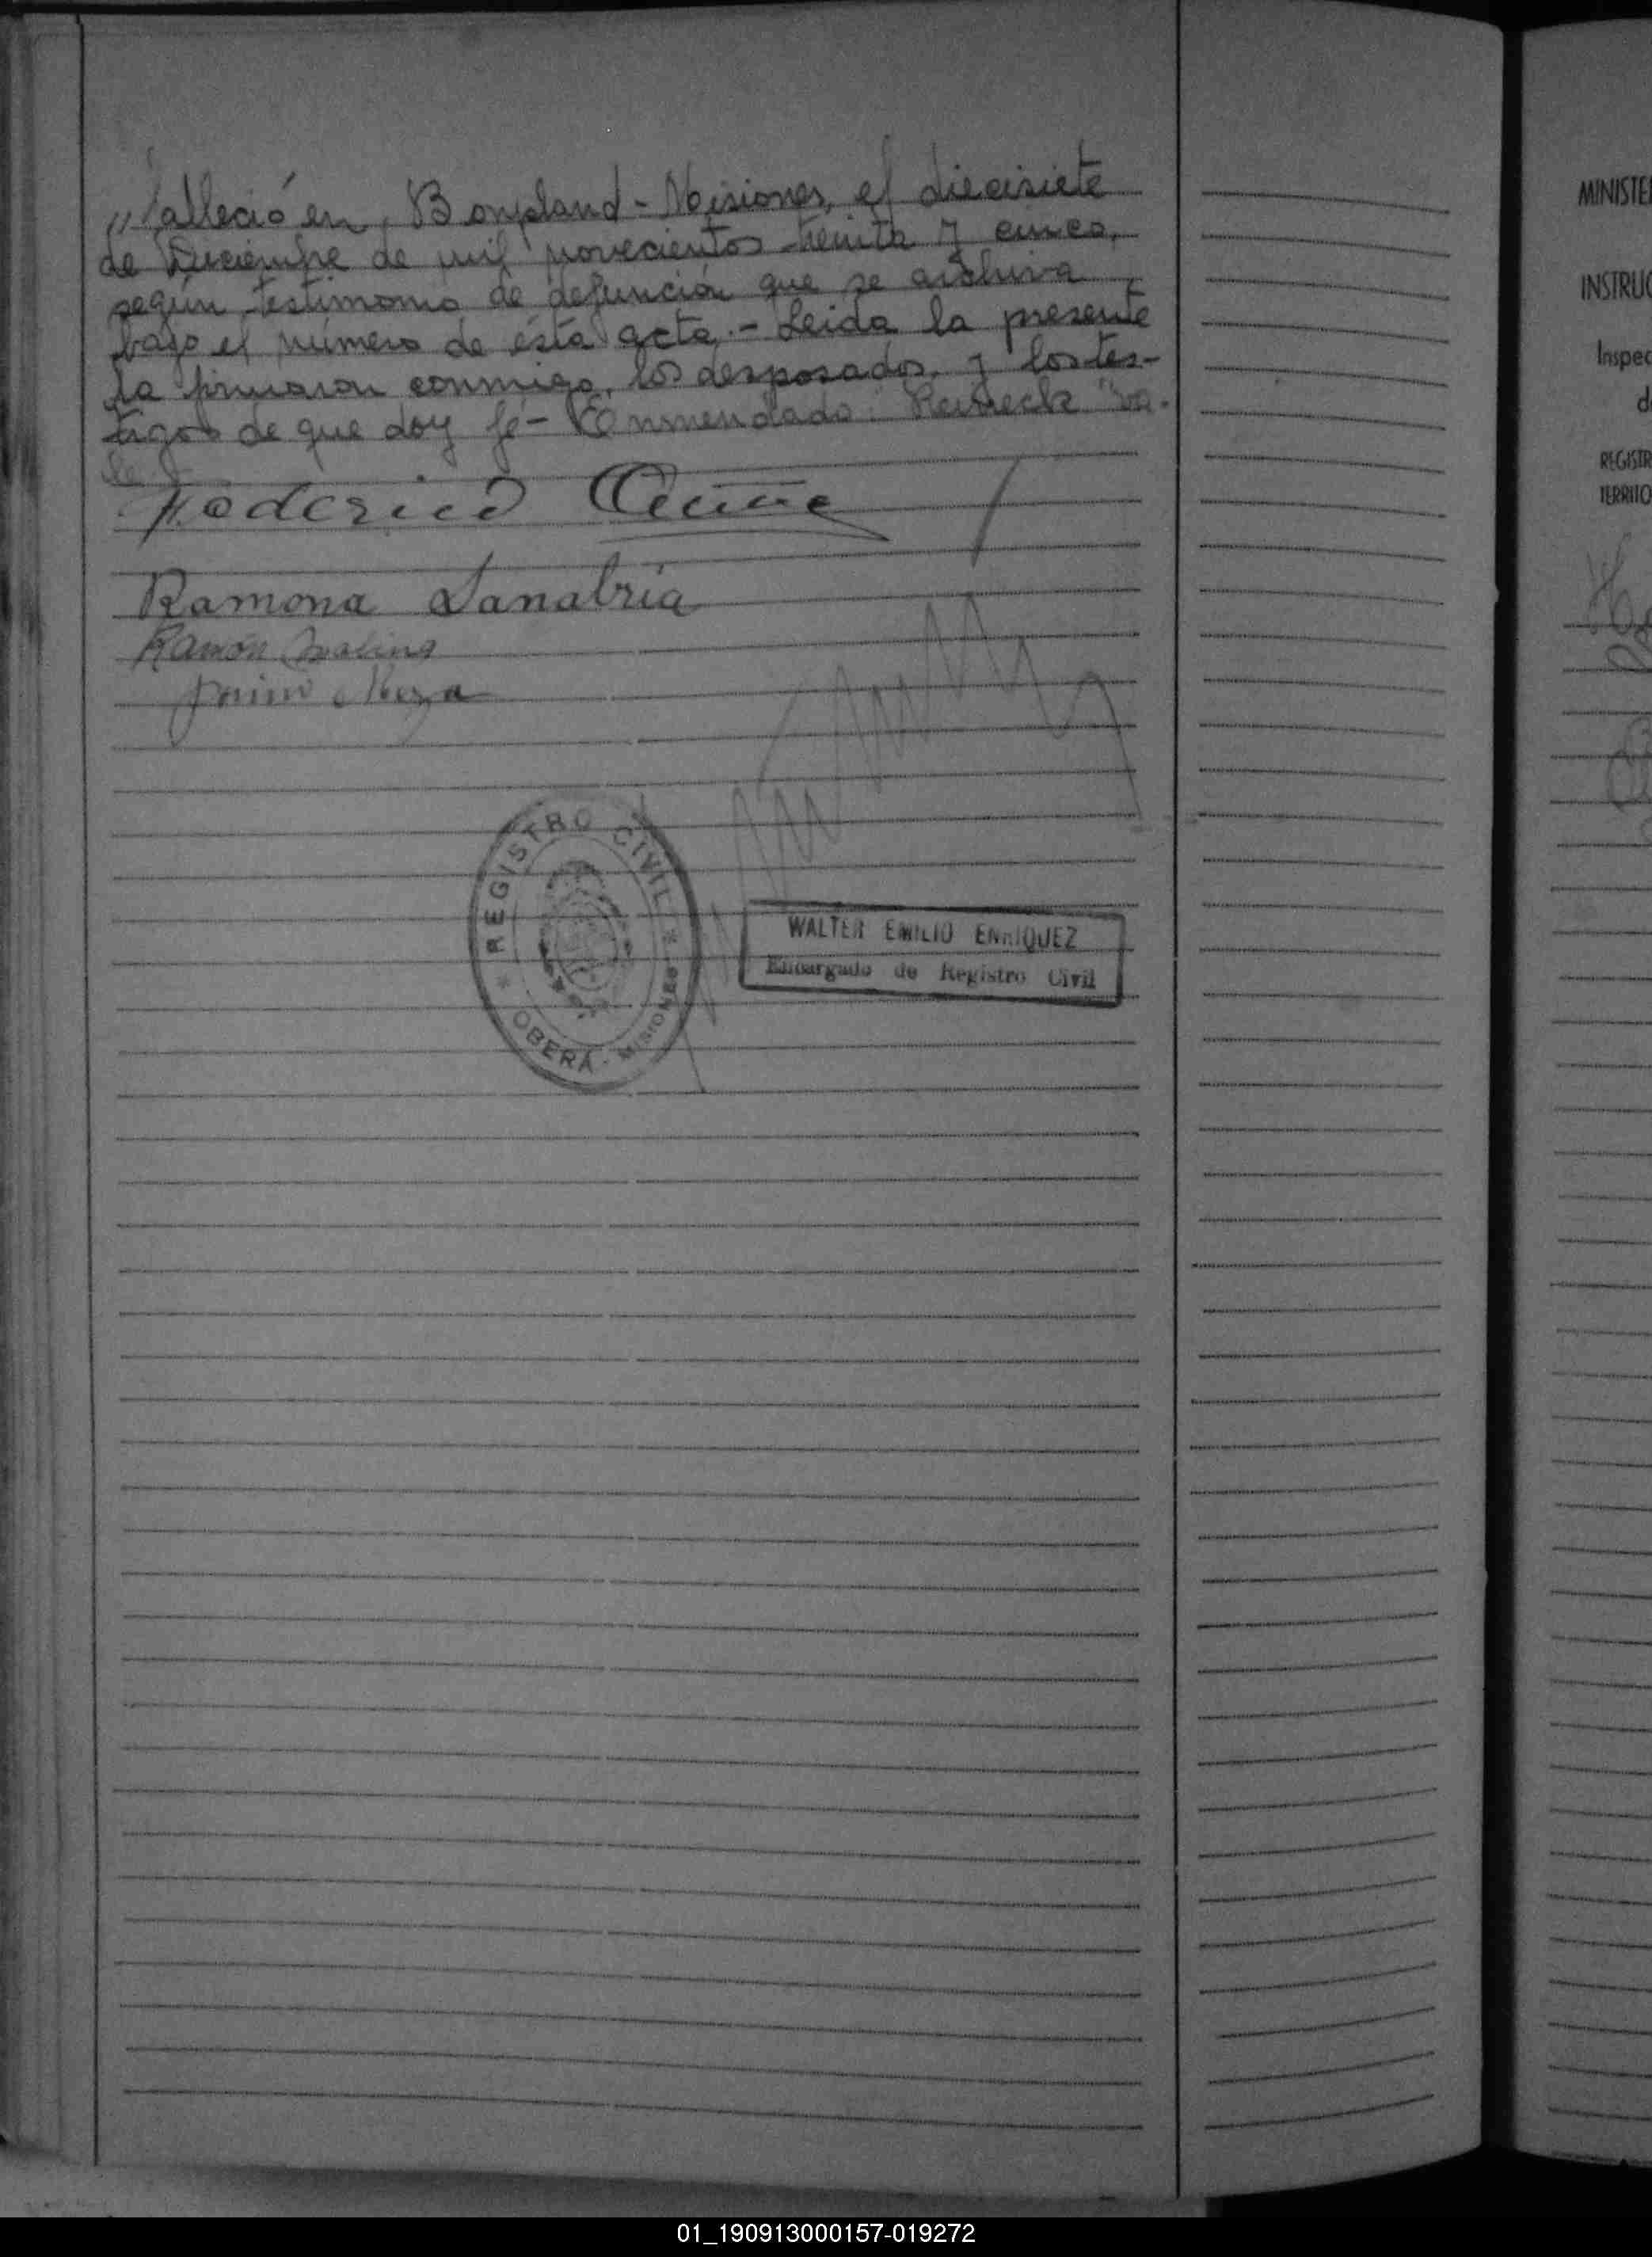 „falleció en, Bonpland - Misiones, el diecisiete
de Diciembre de mil novecientos treinta y cinco,
según testimonio de defunción que se archiva
bajo el número de ésta acta. - Leida la presente
la firmaron conmigo, los desposados, y los tes-
tigos de que doy fé - Enmendado: Reineck "va-
le
Federico
Ramona Sanabria
Ramón
Meza
REGISTRO CIVIL
OBERÁ - MISIONES
WALTER EMILIO ENRIQUEZ
Encargado de Registro Civil
MINISTE
INSTRUC
Inspec
d
REGISTR
TERRITO
01_190913000157-019272